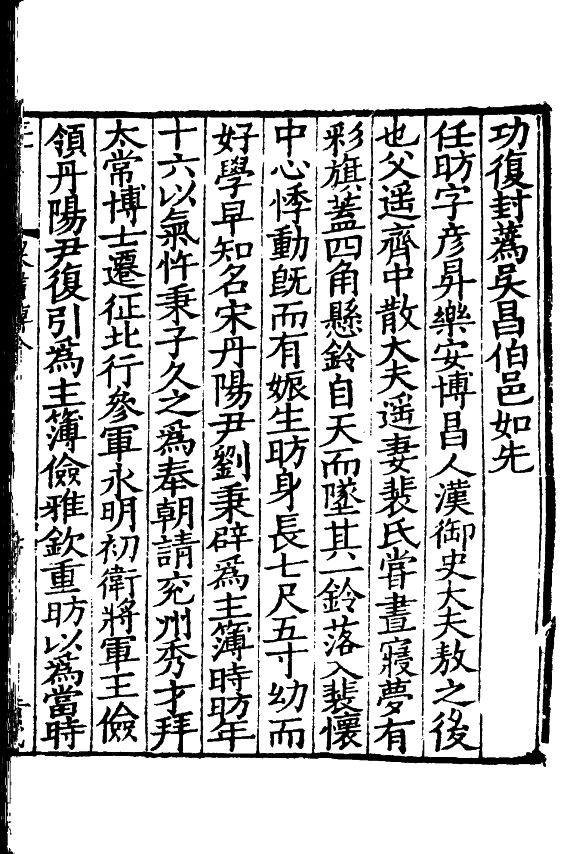 功復封蒍吳昌伯邑如先
任昉字彥昇樂安博昌人漢御史大夫敖之後
也父遥齊中散大夫遥妻裴氏甞晝寢夢有
彩旗葢四角懸鈴自天而墜其一鈴落入裴懷
中心悸動旣而有娠生昉身長七尺五寸幼而
好學早知名宋丹陽尹劉秉辟爲主簿時昉年
十六以氣忤秉子久之爲奉朝請兖州秀才拜
太常博士遷征北行參軍永明初衛將軍王儉
領丹陽尹復引爲主簿儉雅欽重昉以爲當時